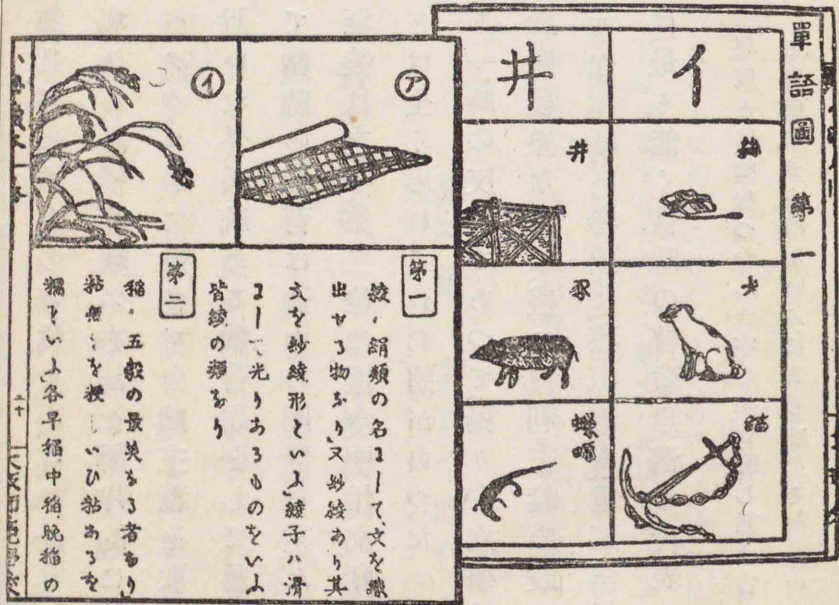 單語圖 第一
イ
犬
錨
井
井
豕
蠑螈
ア
イ
第一
綾、絹類の名にして、文を織
出せる物なり又紗綾あり其
文を紗綾形といふ綾子ハ滑
にして光りあるものをいふ
皆綾の類なり
第二
稲、五穀の最美なる者なり
粘無きを粳といひ粘あるを
糯といふ各早稲中稲晩稲の
二十